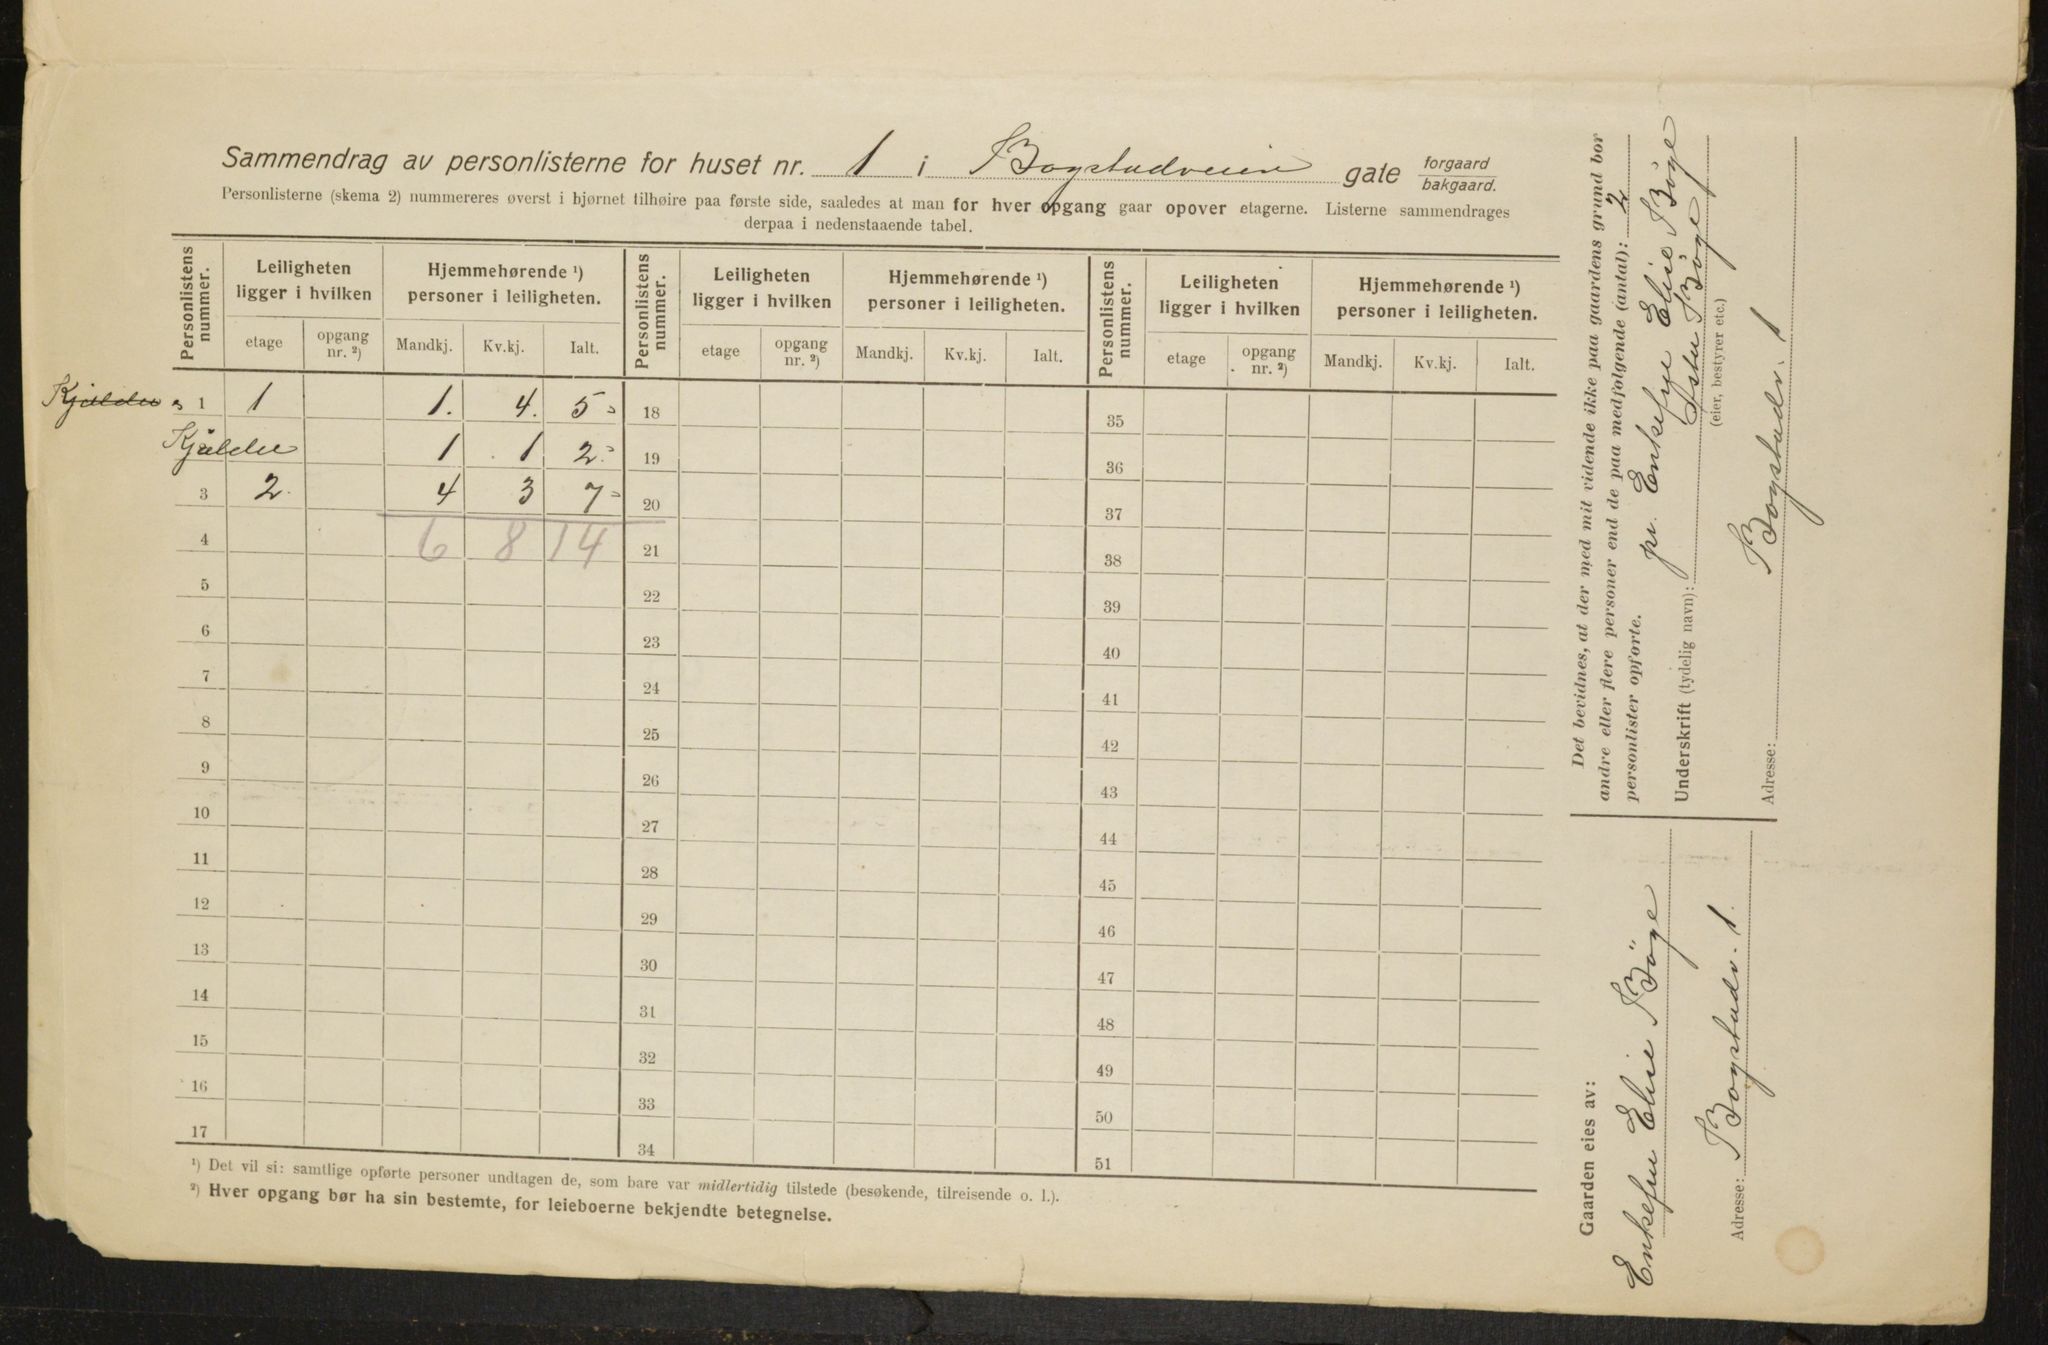 Sammendrag av personlisterne for huset nr. 1 i Bogstadveien gate forgaard bakgaard.
Personlisterne (skema 2) nummereres øverst i hjørnet tilhøire paa første side, saaledes at man for hver opgang gaar opover etagerne. Listerne sammendrages
derpaa i nedenstaaende tabel.
Personlistens nummer. Leiligheten ligger i hvilken Hjemmehørende ¹) personer i leiligheten. Personlistens nummer. Leiligheten ligger i hvilken Hjemmehørende ¹) personer i leiligheten. Personlistens nummer. Leiligheten ligger i hvilken Hjemmehørende ¹) personer i leiligheten.
etage opgang nr. ²) Mandkj. Kv.kj. Ialt. etage opgang nr. ²) Mandkj. Kv.kj. Ialt. etage opgang nr. ²) Mandkj. Kv.kj. Ialt.
Kjælder 1 1 1. 4. 5 18 35
Kjælder 1 1 2 19 36
3 2 4 3 7 20 37
4 6 8 14 21 38
5 22 39
6 23 40
7 24 41
8 25 42
9 26 43
10 27 44
11 28 45
12 29 46
13 30 47
14 31 48
15 32 49
16 33 50
17 34 51
¹) Det vil si: samtlige opførte personer undtagen de, som bare var midlertidig tilstede (besøkende, tilreisende o. l.).
²) Hver opgang bør ha sin bestemte, for leieboerne bekjendte betegnelse.
Det bevidnes, at der med mit vidende ikke paa gaardens grund bor
andre eller flere personer end de paa medfølgende (antal): 2
personlister opførte.
pr. Enkefru Elise Böge
Underskrift (tydelig navn): Böge
(eier, bestyrer etc.)
Adresse: Bogstadv. 1
Gaarden eies av:
Enkefru Elise Böge
Adresse: Bogstadv. 1.